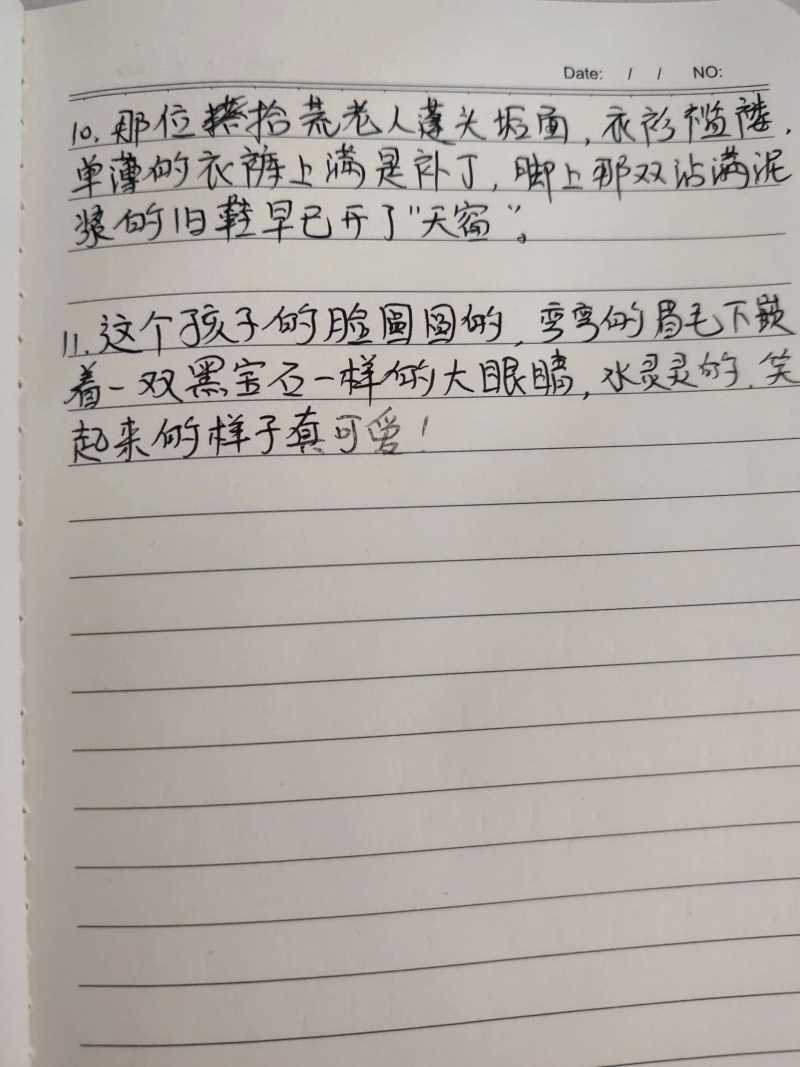 Date: / / NO:
10. 那位拾荒老人蓬头垢面，衣衫褴褛，
单薄的衣裤上满是补丁，脚上那双沾满泥
浆的旧鞋早已开了“天窗”。
11. 这个孩子的脸圆圆的，弯弯的眉毛下嵌
着一双黑宝石一样的大眼睛，水灵灵的，笑
起来的样子真可爱！